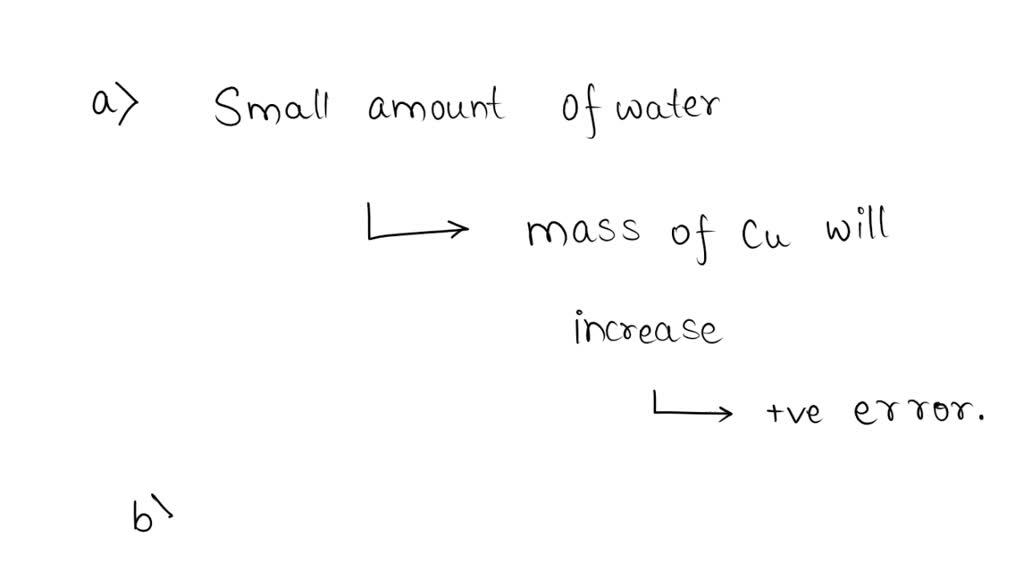 a> Small amount of water
mass of Cu will
increase
+ve error.
b\